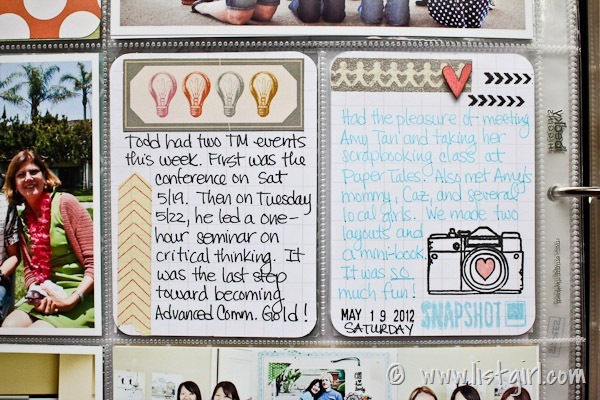 Todd had two TM events
this week. First was the
conference on Sat
5/19. Then on Tuesday
5/22, he led a one-
hour seminar on
critical thinking. It
was the last step
toward becoming
Advanced Comm. Gold!
Had the pleasure of meeting
Amy Tan and taking her
scrapbooking class at
Paper Tales. Also met Amy's
mommy, Caz, and several
local girls. We made two
layouts and
a mini-book.
It was so
much fun!
MAY 19 2012
SATURDAY
SNAPSHOT
© www.listgirl.com